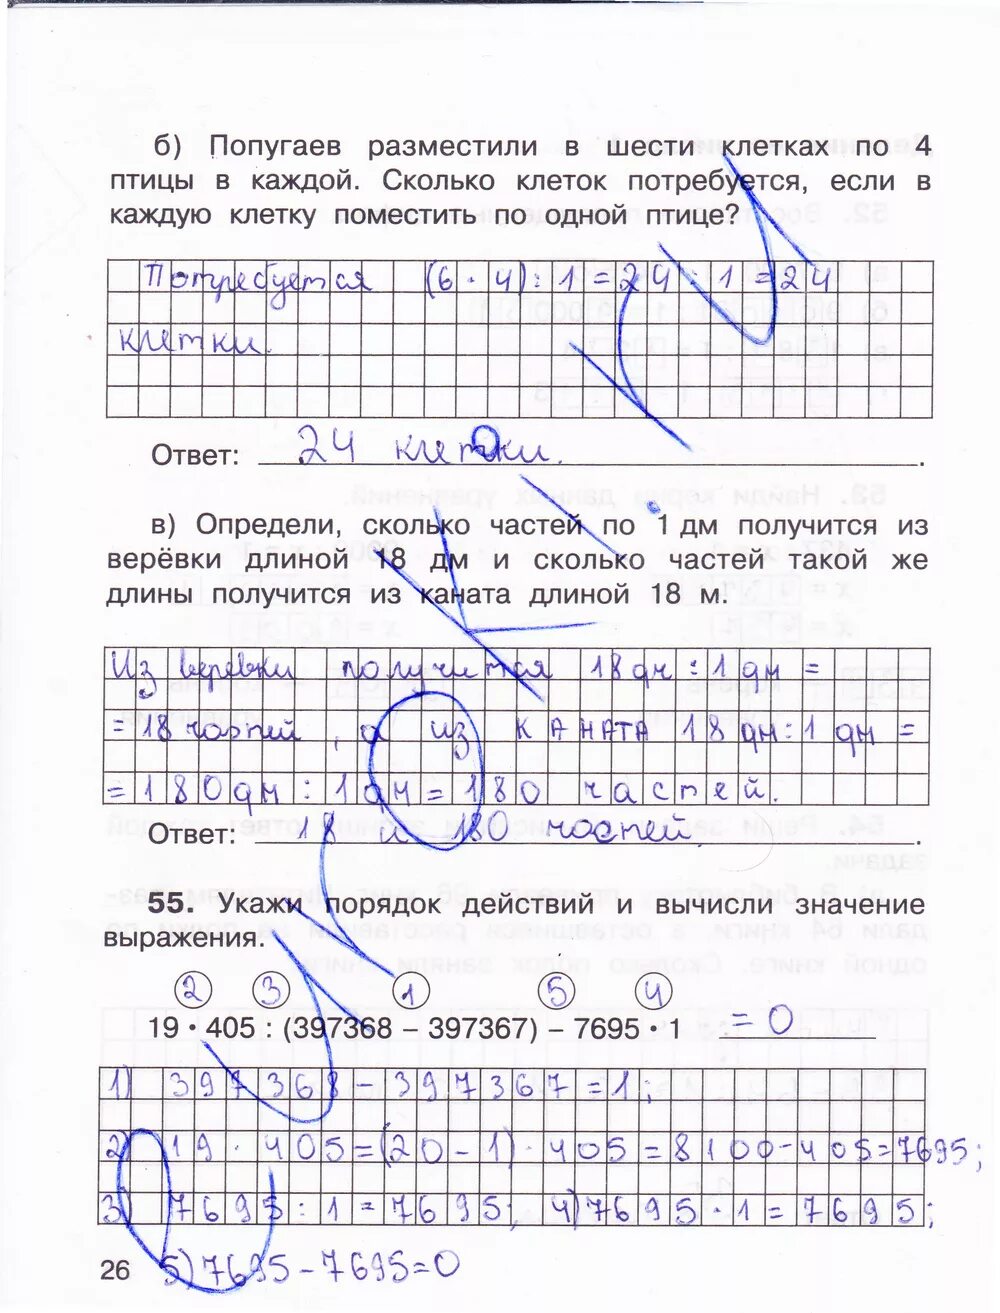 б) Попугаев разместили в шести клетках по 4
птицы в каждой. Сколько клеток потребуется, если в
каждую клетку поместить по одной птице?
Потребуется (6 · 4) : 1 = 24 : 1 = 24
клетки.
Ответ: 24 клетки.
в) Определи, сколько частей по 1 дм получится из
верёвки длиной 18 дм и сколько частей такой же
длины получится из каната длиной 18 м.
Из веревки получится 18 дм : 1 дм =
= 18 частей, а из КАНАТА 18 дм : 1 дм =
= 180 дм : 1 дм = 180 частей.
Ответ: 18 и 180 частей.
55. Укажи порядок действий и вычисли значение
выражения.
2 3 1 5 4
19 · 405 : (397368 – 397367) – 7695 · 1 = 0
1) 397368 – 397367 = 1;
2) 19 · 405 = (20 – 1) · 405 = 8100 – 405 = 7695;
3) 7695 : 1 = 7695, 4) 7695 · 1 = 7695;
26 5) 7695 – 7695 = 0